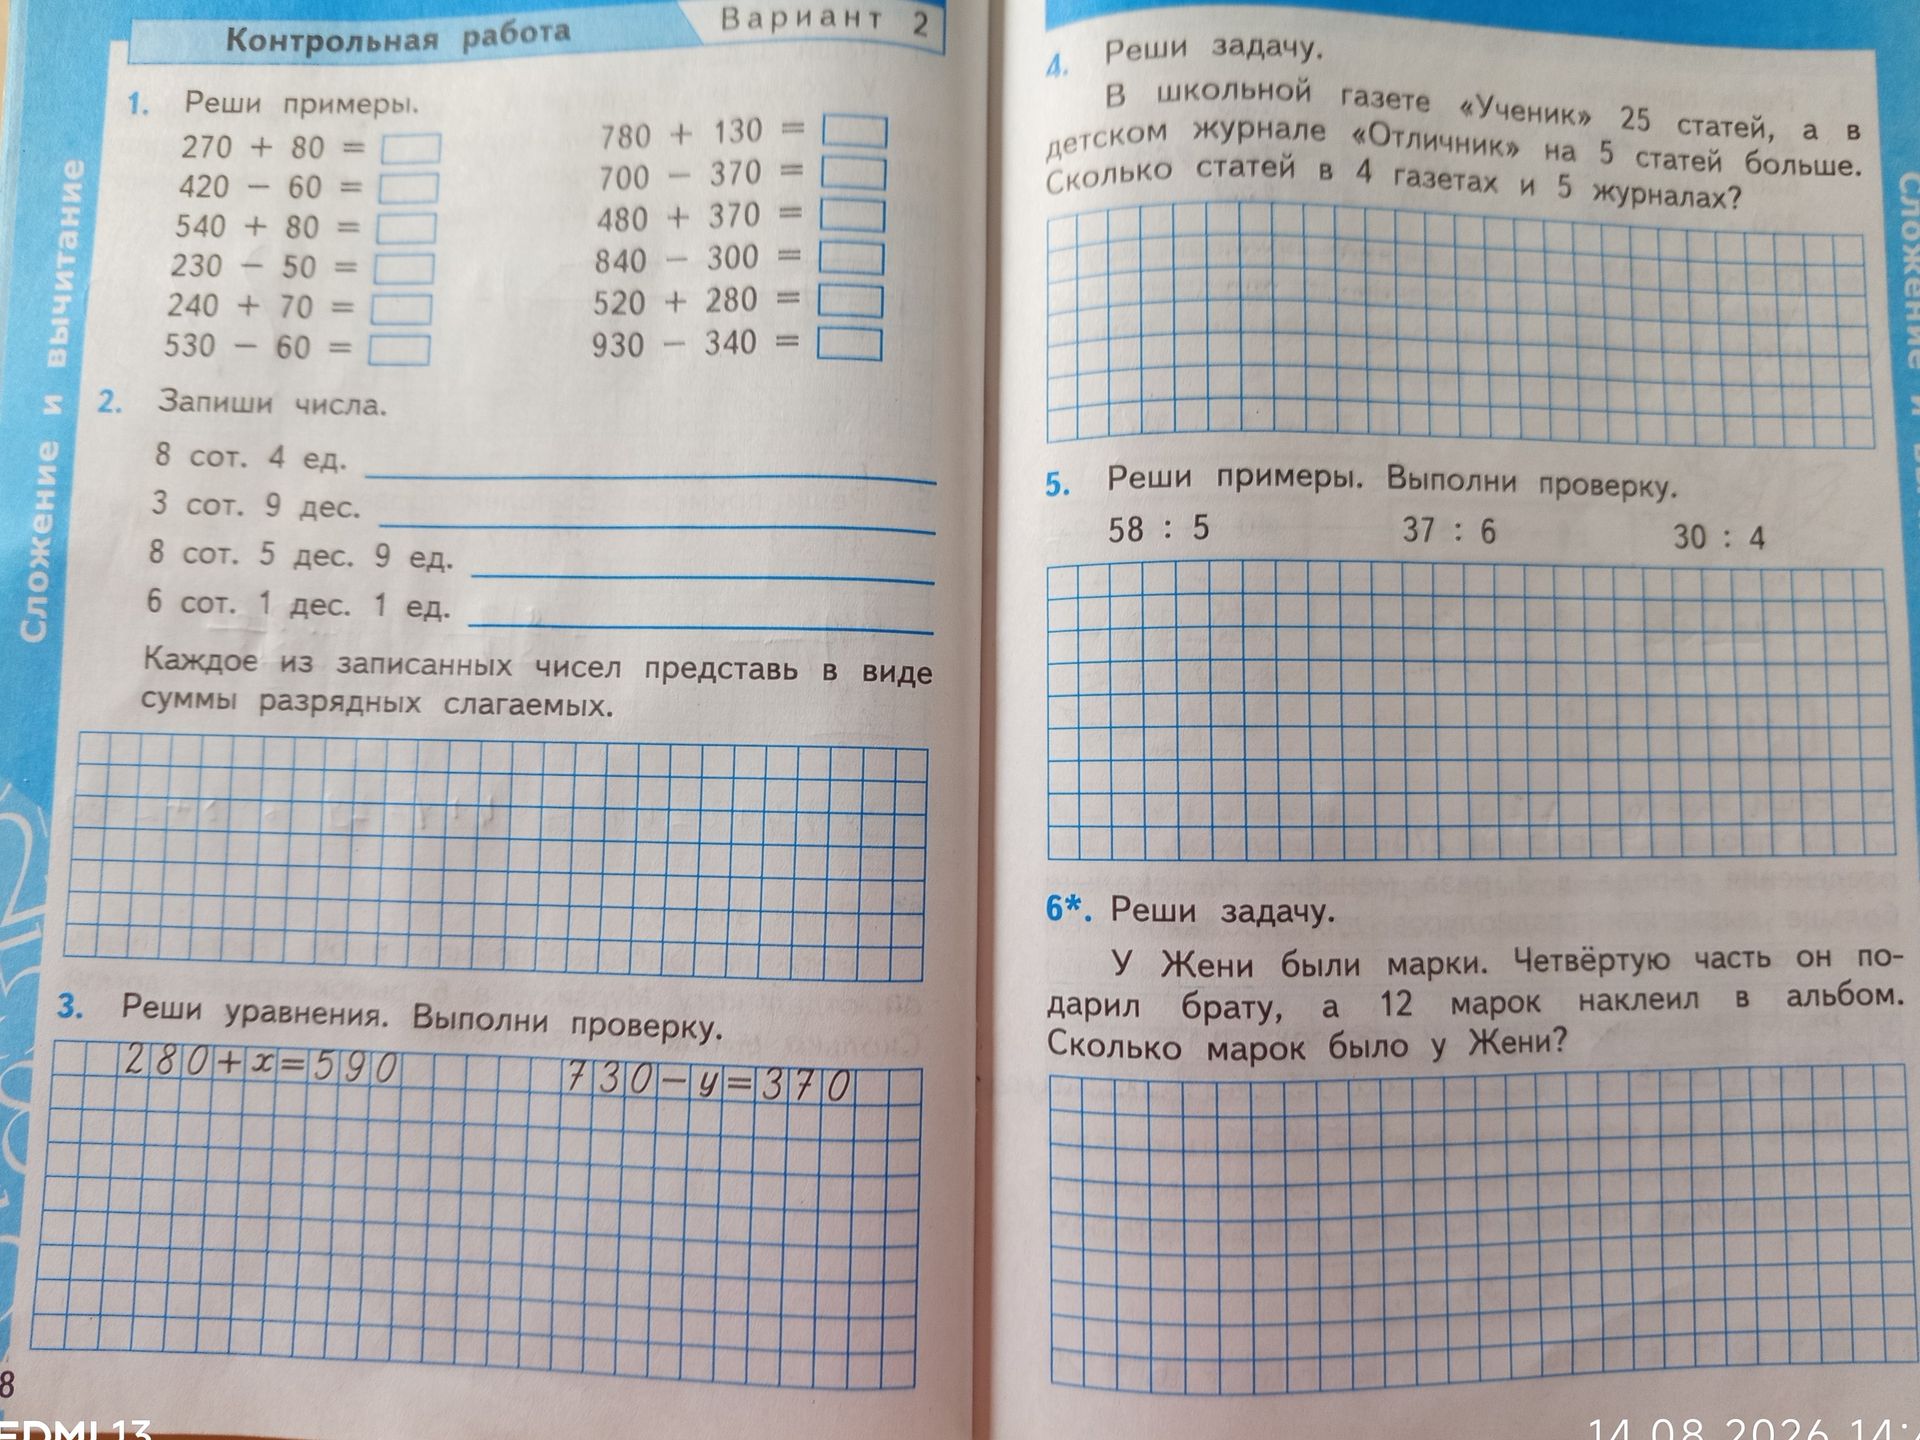 Контрольная работа
Вариант 2
Сложение и вычитание
1. Реши примеры.
270 + 80 =
420 − 60 =
540 + 80 =
230 − 50 =
240 + 70 =
530 − 60 =
780 + 130 =
700 − 370 =
480 + 370 =
840 − 300 =
520 + 280 =
930 − 340 =
2. Запиши числа.
8 сот. 4 ед.
3 сот. 9 дес.
8 сот. 5 дес. 9 ед.
6 сот. 1 дес. 1 ед.
Каждое из записанных чисел представь в виде
суммы разрядных слагаемых.
3. Реши уравнения. Выполни проверку.
280+x=590
730−y=370
8
4. Реши задачу.
В школьной газете «Ученик» 25 статей, а в
детском журнале «Отличник» на 5 статей больше.
Сколько статей в 4 газетах и 5 журналах?
5. Реши примеры. Выполни проверку.
58 : 5 37 : 6 30 : 4
6*. Реши задачу.
У Жени были марки. Четвёртую часть он по-
дарил брату, а 12 марок наклеил в альбом.
Сколько марок было у Жени?
Сложение и
14.08.2026 14: